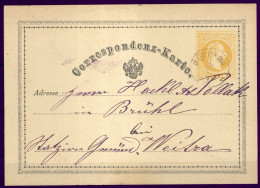 Correspondenz-Karte.
Adresse Herrn Hackl & Pollack
in Brühl
bei
Station Gmünd, Weitra